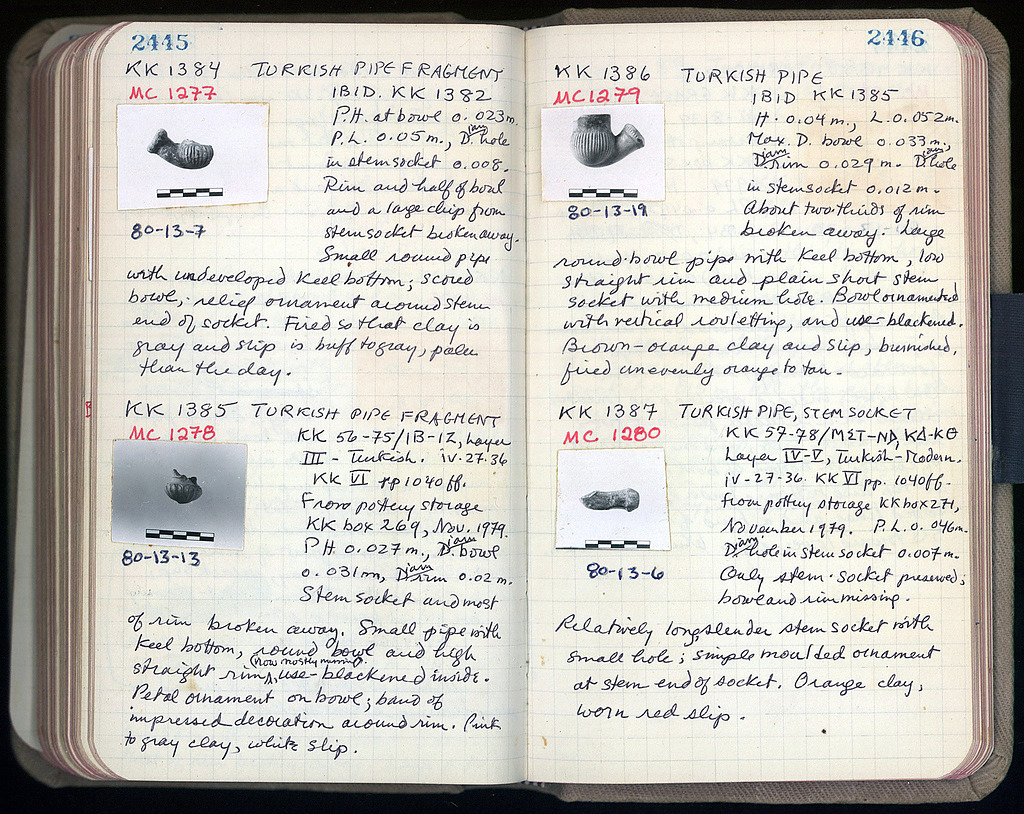 2445
KK 1384 TURKISH PIPE FRAGMENT
MC 1277
IBID. KK 1382
P.H. at bowl 0.023m.
P.L. 0.05m., Diam. hole
in stem socket 0.008.
Rim and half of bowl
and a large chip from
stem socket broken away.
80-13-7
Small round pipe
with undeveloped keel bottom; scored
bowl; relief ornament around stem
end of socket. Fired so that clay is
gray and slip is buff to gray, paler
than the clay.
KK 1385 TURKISH PIPE FRAGMENT
MC 1278
KK 56-75/IB-IZ, Layer
III - Turkish. iv-27-36
KK VI pp 1040ff.
From pottery storage
KK box 269, Nov. 1979.
80-13-13
PH 0.027m., Diam. bowl
0.031m, Diam. rim 0.02m.
Stem socket and most
of rim broken away. Small pipe with
keel bottom, round bowl and high
straight rim (now mostly missing), use-blackened inside.
Petal ornament on bowl; band of
impressed decoration around rim. Pink
to gray clay, white slip.
2446
KK 1386 TURKISH PIPE
MC 1279
IBID KK 1385
H. 0.04m., L. 0.052m.
Max. D. bowl 0.033m.,
Diam. rim 0.029m. Diam. hole
in stem socket 0.012m.
80-13-19
About two-thirds of rim
broken away. Large
round-bowl pipe with keel bottom, low
straight rim and plain short stem
socket with medium hole. Bowl ornamented
with vertical rouletting, and use-blackened.
Brown-orange clay and slip, burnished,
fired unevenly orange to tan.
KK 1387 TURKISH PIPE, STEM SOCKET
MC 1280
KK 57-78/MΣT-NΔ, KΔ-KΘ
Layer IV-V, Turkish-Modern.
iv-27-36. KK VI pp. 1040ff.
From pottery storage KK box 271,
November 1979. P.L. 0.046m.
Diam. hole in stem socket 0.007m.
80-13-6
Only stem-socket preserved;
bowl and rim missing.
Relatively long slender stem socket with
small hole; simple moulded ornament
at stem end of socket. Orange clay,
worn red slip.